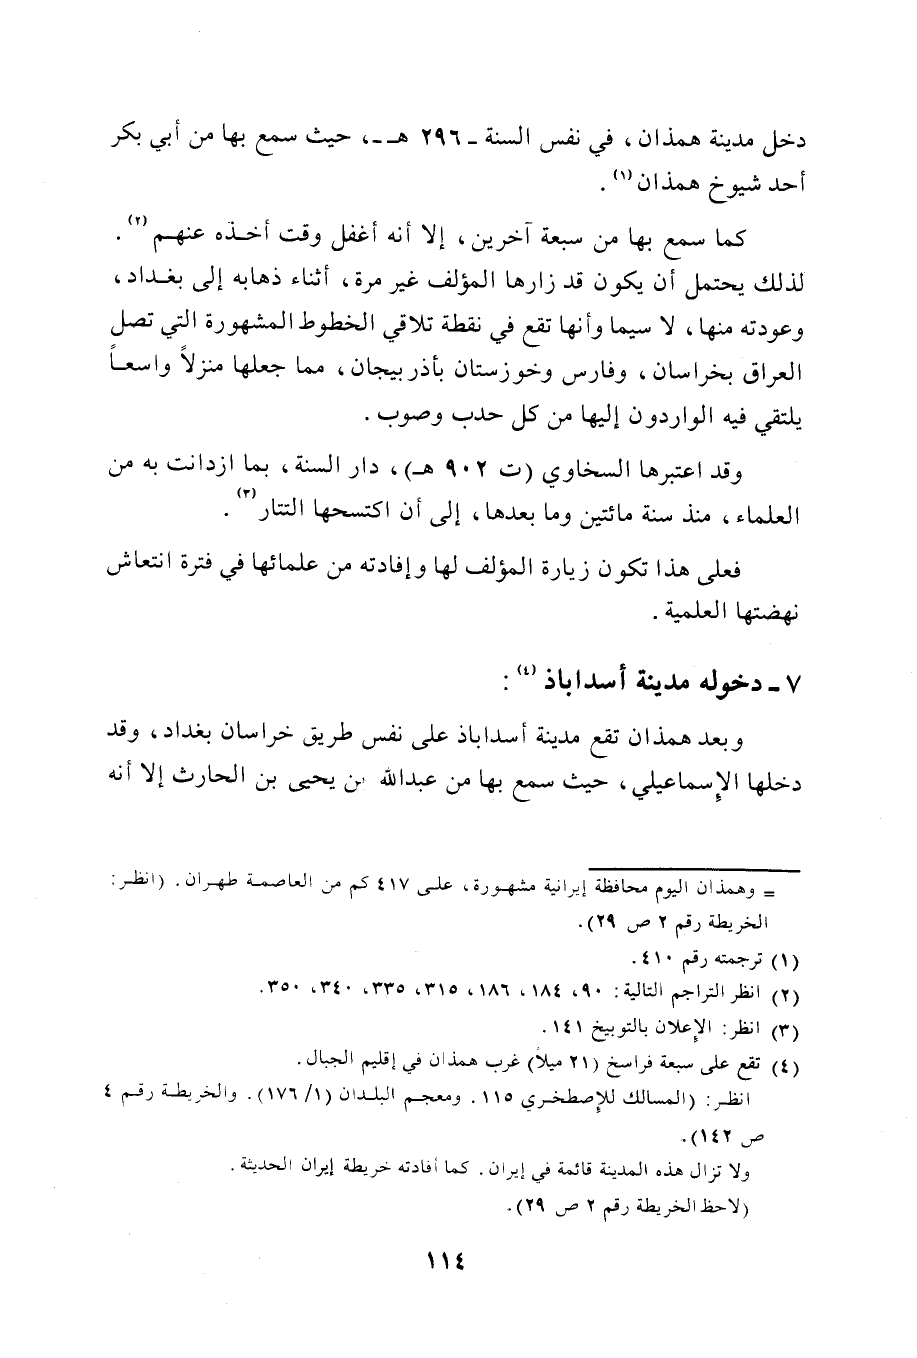 دخل مدينة همذان، في نفس السنة ـ ٢٩٦ هـ ـ، حيث سمع بها من أبي بكر
أحد شيوخ همذان(١).
كما سمع بها من سبعة آخرين، إلا أنه أغفل وقت أخذه عنهم(٢).
لذلك يحتمل أن يكون قد زارها المؤلف غير مرة، أثناء ذهابه إلى بغداد،
وعودته منها، لا سيما وأنها تقع في نقطة تلاقي الخطوط المشهورة التي تصل
العراق بخراسان، وفارس وخوزستان بأذربيجان، مما جعلها منزلاً واسعاً
يلتقي فيه الواردون إليها من كل حدب وصوب.
وقد اعتبرها السخاوي (ت ٩٠٢ هـ)، دار السنة، بما ازدانت به من
العلماء، منذ سنة مائتين وما بعدها، إلى أن اكتسحها التتار(٣).
فعلى هذا تكون زيارة المؤلف لها وإفادته من علمائها في فترة انتعاش
نهضتها العلمية.
٧ ـ دخوله مدينة أسداباذ(٤):
وبعد همذان تقع مدينة أسداباذ على نفس طريق خراسان بغداد، وقد
دخلها الإسماعيلي، حيث سمع بها من عبدالله بن يحيى بن الحارث إلا أنه
= وهمذان اليوم محافظة إيرانية مشهورة، على ٤١٧ كم من العاصمة طهران. (انظر:
الخريطة رقم ٢ ص ٢٩).
(١) ترجمته رقم ٤١٠.
(٢) انظر التراجم التالية: ٩٠، ١٨٤، ١٨٦، ٣١٥، ٣٣٥، ٣٤٠، ٣٥٠.
(٣) انظر: الإعلان بالتوبيخ ١٤١.
(٤) تقع على سبعة فراسخ (٢١ ميلاً) غرب همذان في إقليم الجبال.
انظر: (المسالك للإصطخري ١١٥. ومعجم البلدان (١/ ١٧٦). والخريطة رقم ٤
ص ١٤٢).
ولا تزال هذه المدينة قائمة في إيران. كما أفادته خريطة إيران الحديثة.
(لاحظ الخريطة رقم ٢ ص ٢٩).
١١٤